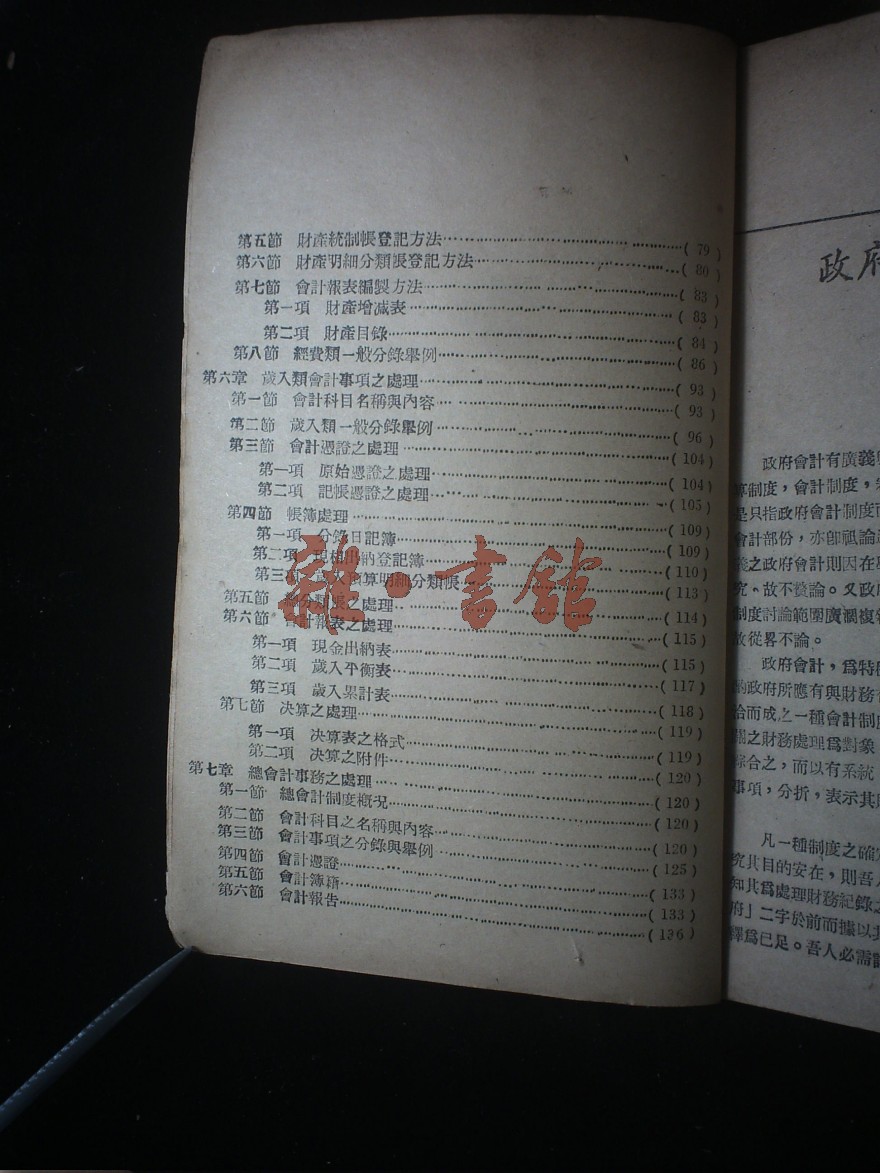 第五節 財產統制帳登記方法……(79)
第六節 財產明細分類帳登記方法……(80)
第七節 會計報表編製方法……(83)
第一項 財產增減表……(83)
第二項 財產目錄……(84)
第八節 經費類一般分錄舉例……(86)
第六章 歲入類會計事項之處理……(93)
第一節 會計科目名稱與內容……(93)
第二節 歲入類一般分錄舉例……(96)
第三節 會計憑證之處理……(104)
第一項 原始憑證之處理……(104)
第二項 記帳憑證之處理……(105)
第四節 帳簿處理……(109)
第一項 分錄日記簿……(109)
第二項 現格出納登記簿……(110)
第三項 歲入預算明細分類帳……(113)
第五節 總分類帳之處理……(114)
第六節 會計報表之處理……(115)
第一項 現金出納表……(115)
第二項 歲入平衡表……(117)
第三項 歲入累計表……(118)
第七節 決算之處理……(119)
第一項 決算表之格式……(119)
第二項 決算之附件……(120)
第七章 總會計事務之處理……(120)
第一節 總會計制度概況……(120)
第二節 會計科目之名稱與內容……(120)
第三節 會計事項之分錄與舉例……(125)
第四節 會計憑證……(133)
第五節 會計簿籍……(133)
第六節 會計報告……(136)
雜·書館
政府
政府會計有廣義
算制度，會計制度，
是只指政府會計制度而
會計部份，亦卽祖論
義之政府會計則因在
究，故不贅論。又政府
制度討論範圍廣濶複
故從畧不論。
政府會計，爲特
的政府所應有與財務
合而成之一種會計制
關之財務處理爲對象
綜合之，而以有系統
事項，分折，表示其
凡一種制度之確
究其目的安在，則吾人
知其爲處理財務紀錄之
府」二字於前而據以
釋爲已足。吾人必需